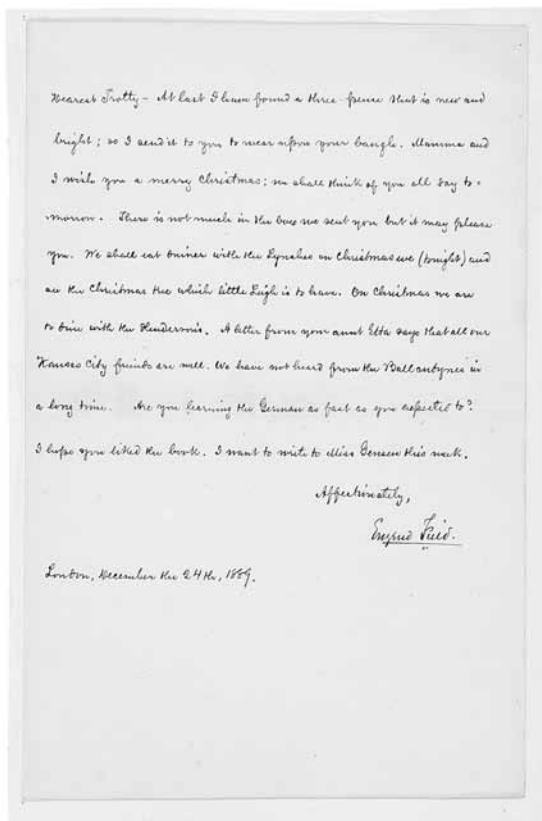 Dearest Trotty – At last I have found a three-pence that is new and
bright; so I send it to you to wear upon your bangle. Mamma and
I wish you a merry Christmas; we shall think of you all day to-
morrow. There is not much in the box we sent you but it may please
you. We shall eat dinner with the Lynches on Christmas eve (tonight) and
see the Christmas tree which little Leigh is to have. On Christmas we are
to dine with the Hendersons. A letter from your aunt Etta says that all our
Kansas City friends are well. We have not heard from the Ballantynes in
a long time. Are you learning the German as fast as you expected to?
I hope you liked the book. I want to write to Miss Jensen this week.
Affectionately,
Eugene Field.
London, December the 24th, 1889.